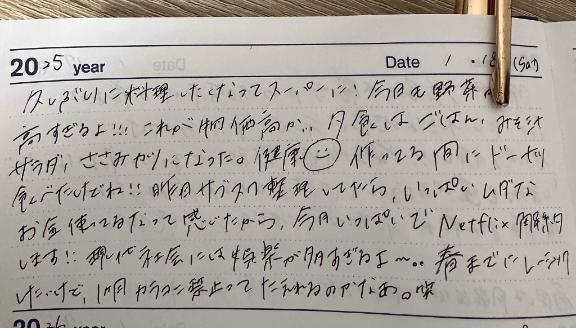 2025 year Date 1 . 18 (Sat)
久しぶりに料理したくなってスーパーに！今日も野菜が
高すぎるよ!!! これが物価高か.. 夕食はごはん、みそ汁
サラダ、ささみカツになった。健康 作ってる間にドーナツ
食べたけどね!! 昨日サブスク整理してたら、いっぱいムダな
お金使ってるなって感じたから、今月いっぱいで Netflix 解約
します!! 現代社会には娯楽が多すぎるよ〜.. 春までに
たいけど、1ヶ月 カラコン禁止って たえれるのかなぁ。笑
2026 year